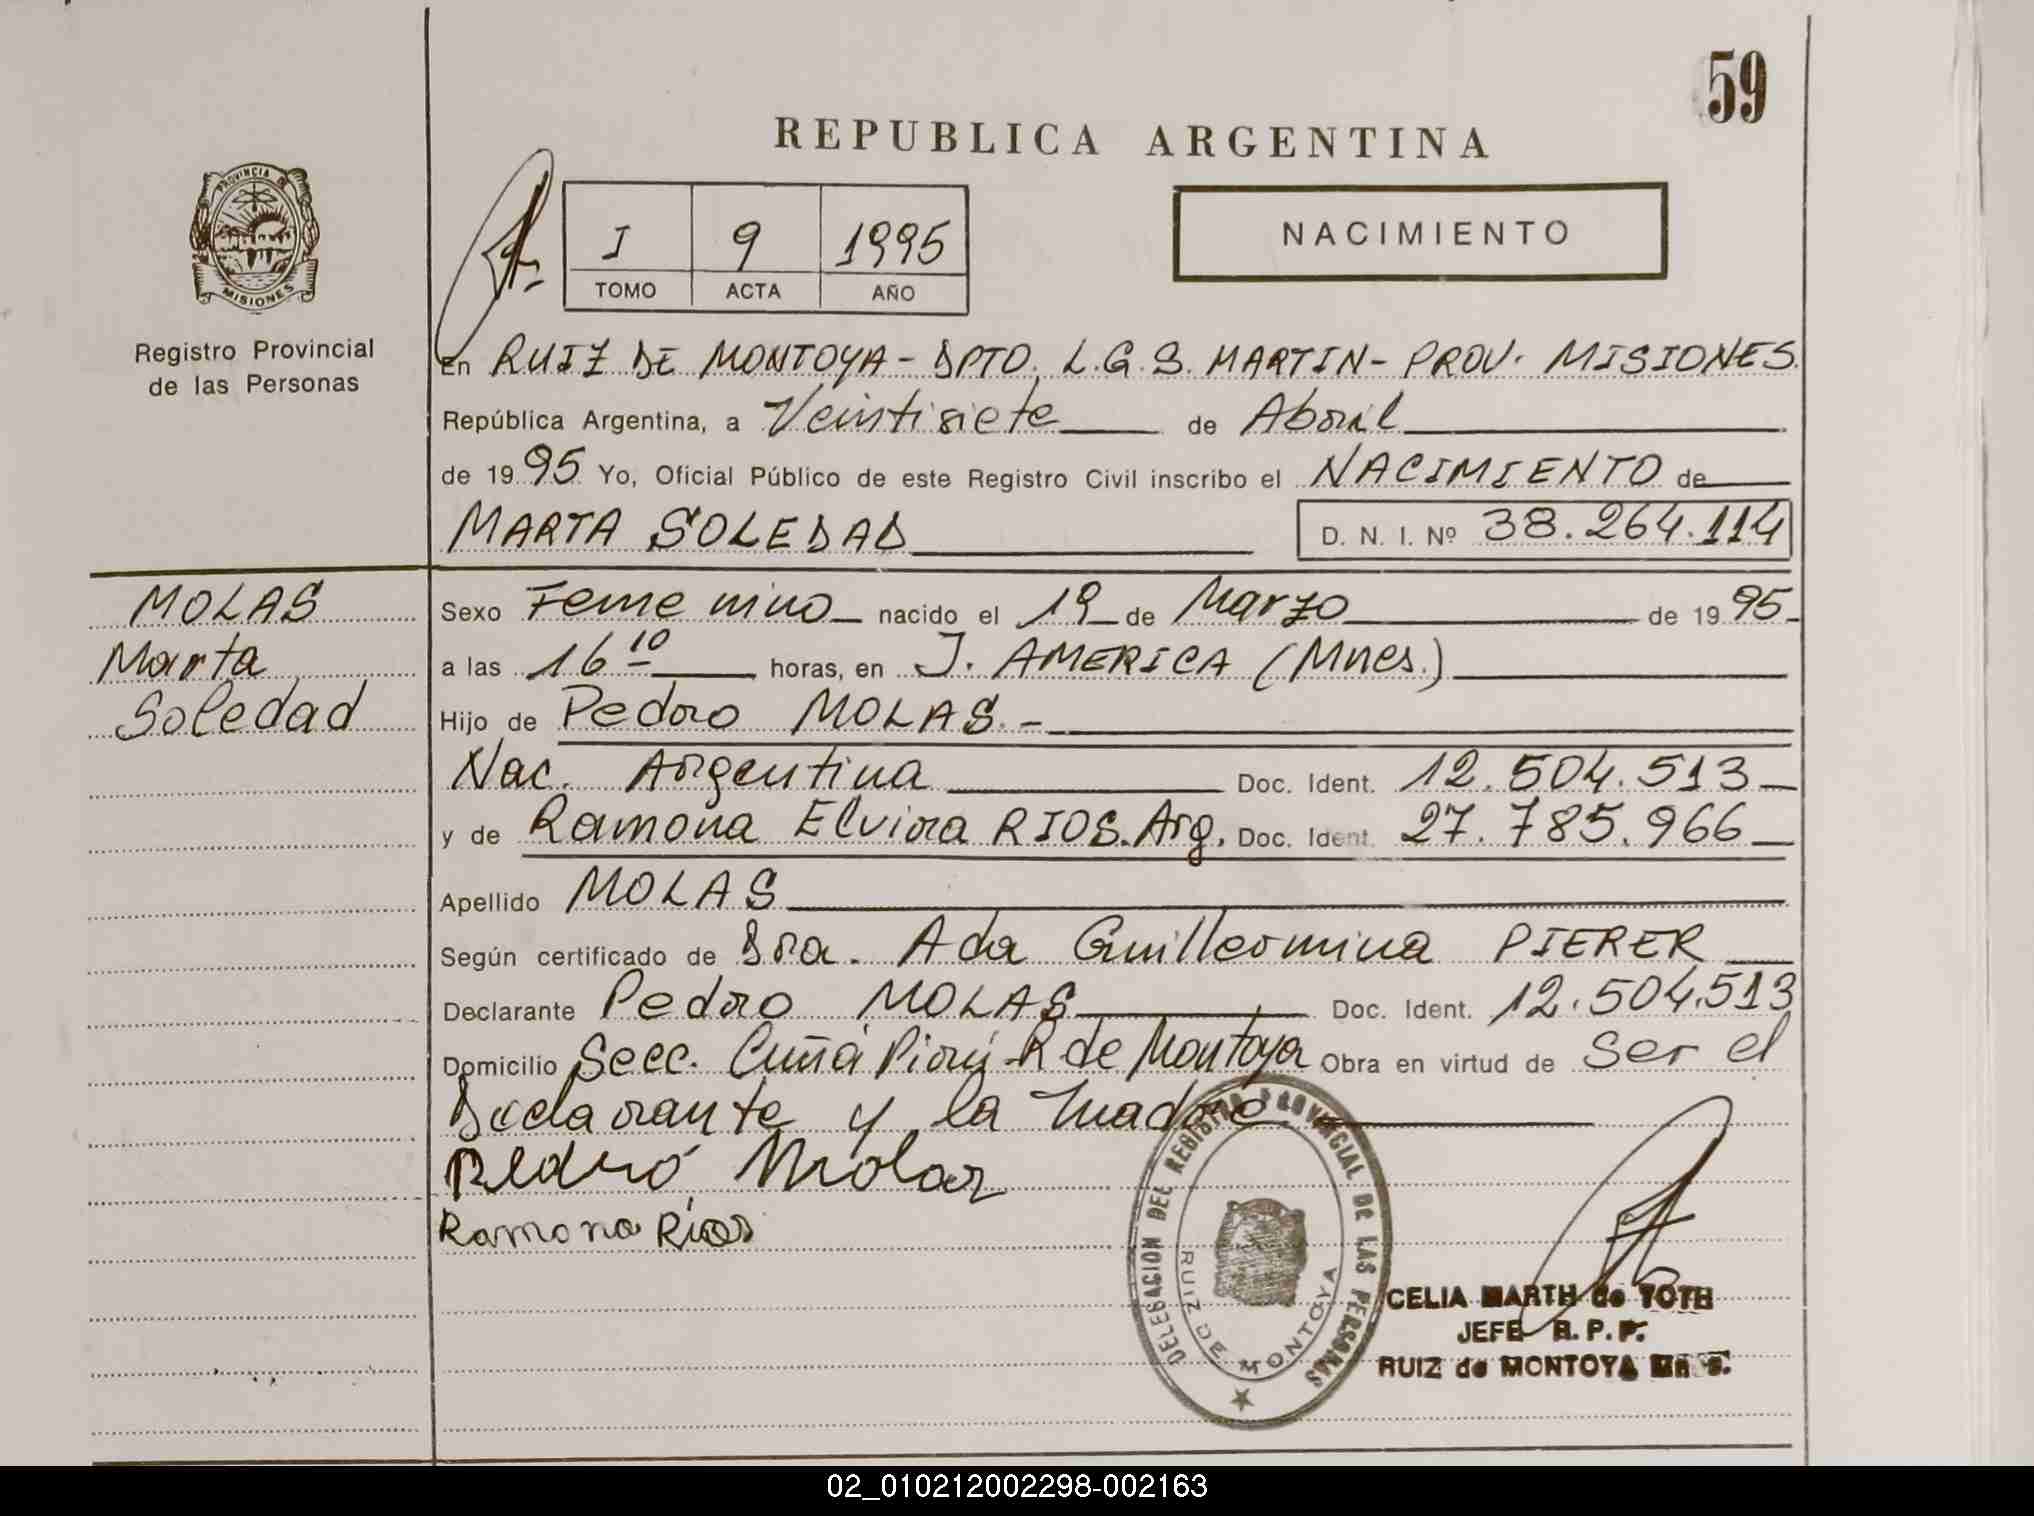 59
REPUBLICA ARGENTINA
PROVINCIA DE
MISIONES
Registro Provincial
de las Personas
I 9 1995
TOMO ACTA AÑO
NACIMIENTO
En RUIZ DE MONTOYA - DPTO. L.G.S. MARTIN - PROV. MISIONES.
República Argentina, a Veintisiete de Abril
de 1995 Yo, Oficial Público de este Registro Civil inscribo el NACIMIENTO de
MARTA SOLEDAD D. N. I. Nº 38.264.114
MOLAS
Marta
Soledad
Sexo Femenino nacido el 19 de Marzo de 1995-
a las 16 10 horas, en J. AMERICA (Mnes.)
Hijo de Pedro MOLAS.-
Nac. Argentina Doc. Ident. 12.504.513
y de Ramona Elvira RIOS. Arg. Doc. Ident. 27.785.966
Apellido MOLAS
Según certificado de Dra. Ada Guillermina PIERER
Declarante Pedro MOLAS Doc. Ident. 12.504.513
Domicilio Secc. Cuñá Pirú-R de Montoya Obra en virtud de Ser el
Declarante y la Madre
Pedro Molas
Ramona Rios
DELEGACION DEL REGISTRO PROVINCIAL DE LAS PERSONAS
RUIZ DE MONTOYA
CELIA MARTH de TOTH
JEFE R.P.P.
RUIZ de MONTOYA Mnes.
02_010212002298-002163